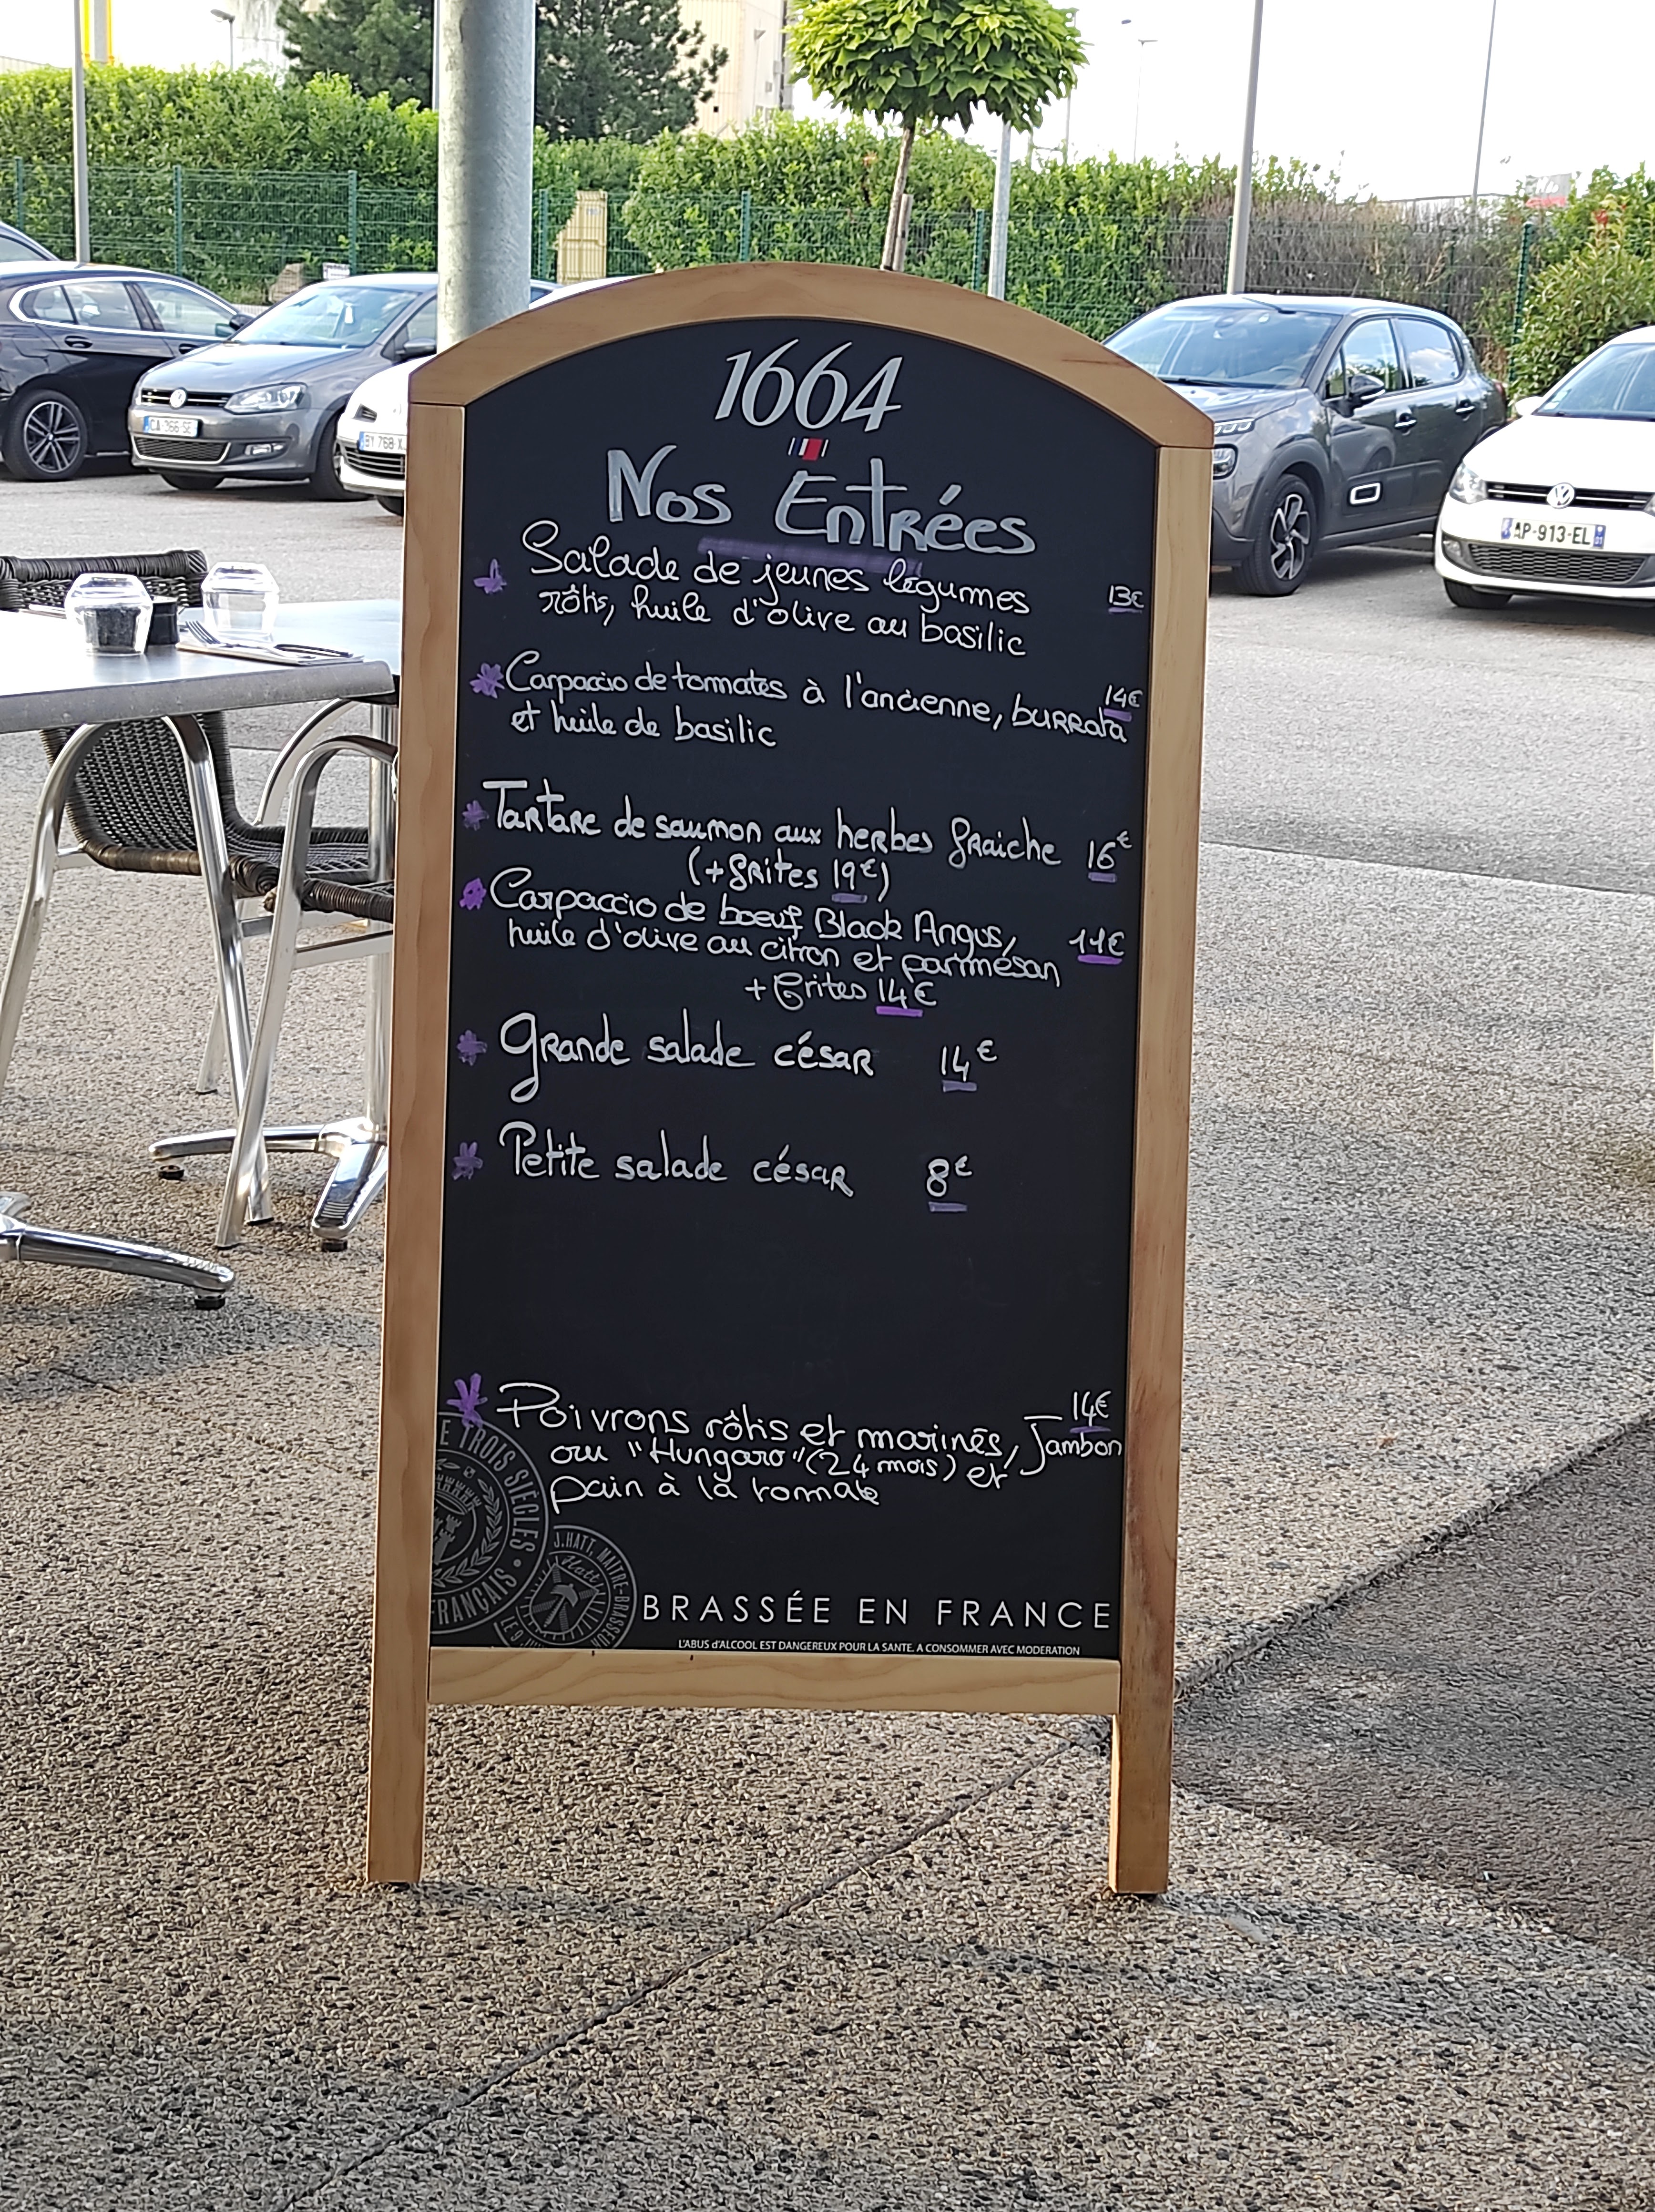 1664
Nos Entrées
Salade de jeunes légumes 13€
rôtis, huile d'olive au basilic
Carpaccio de tomates à l'ancienne, burrata 14€
et huile de basilic
Tartare de saumon aux herbes fraiche 16€
(+frites 19€)
Carpaccio de boeuf Black Angus, 11€
huile d'olive au citron et parmesan
+ frites 14€
Grande salade césar 14€
Petite salade césar 8€
Poivrons rôtis et marinés, Jambon 14€
ou "Hungaro" (24 mois) et
pain à la tomate
E TROIS SIÈCLES • FRANÇAIS
J.HATT, MAITRE-BRASSEUR
Hatt
BRASSÉE EN FRANCE
L'ABUS d'ALCOOL EST DANGEREUX POUR LA SANTE. A CONSOMMER AVEC MODERATION
CA-366-SE
BY 768 X
AP-913-EL